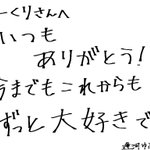 ーくりさんへ
いつも
ありがとう!
今までもこれからも
ずっと大好きで